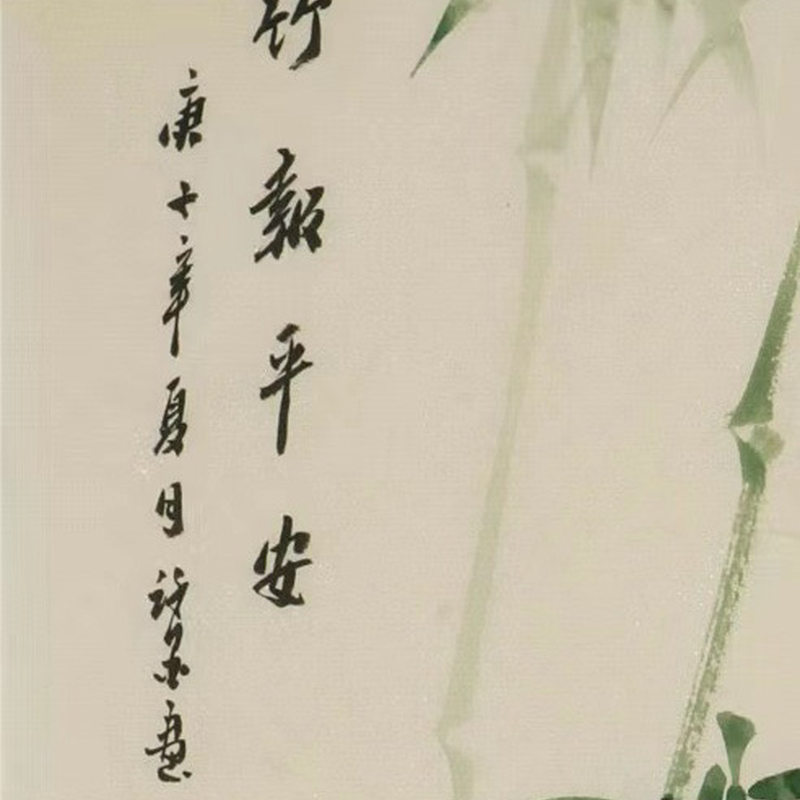 竹報平安
庚
年夏日
画